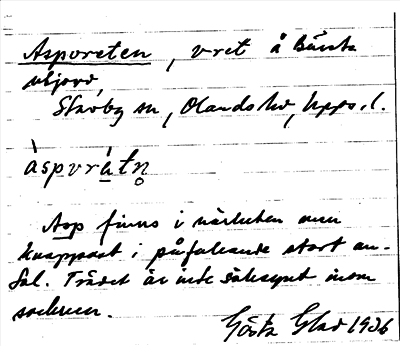 Aspvreten, vret å Bärsta
utjord,
Skäfby sn, Olands hd, Upps. l.
àspvrèt​n̥
Asp finns i närheten men
knappast i påfallande stort an-
tal. Trädet är inte sällsynt inom
socknen.
Gösta Glad 1936